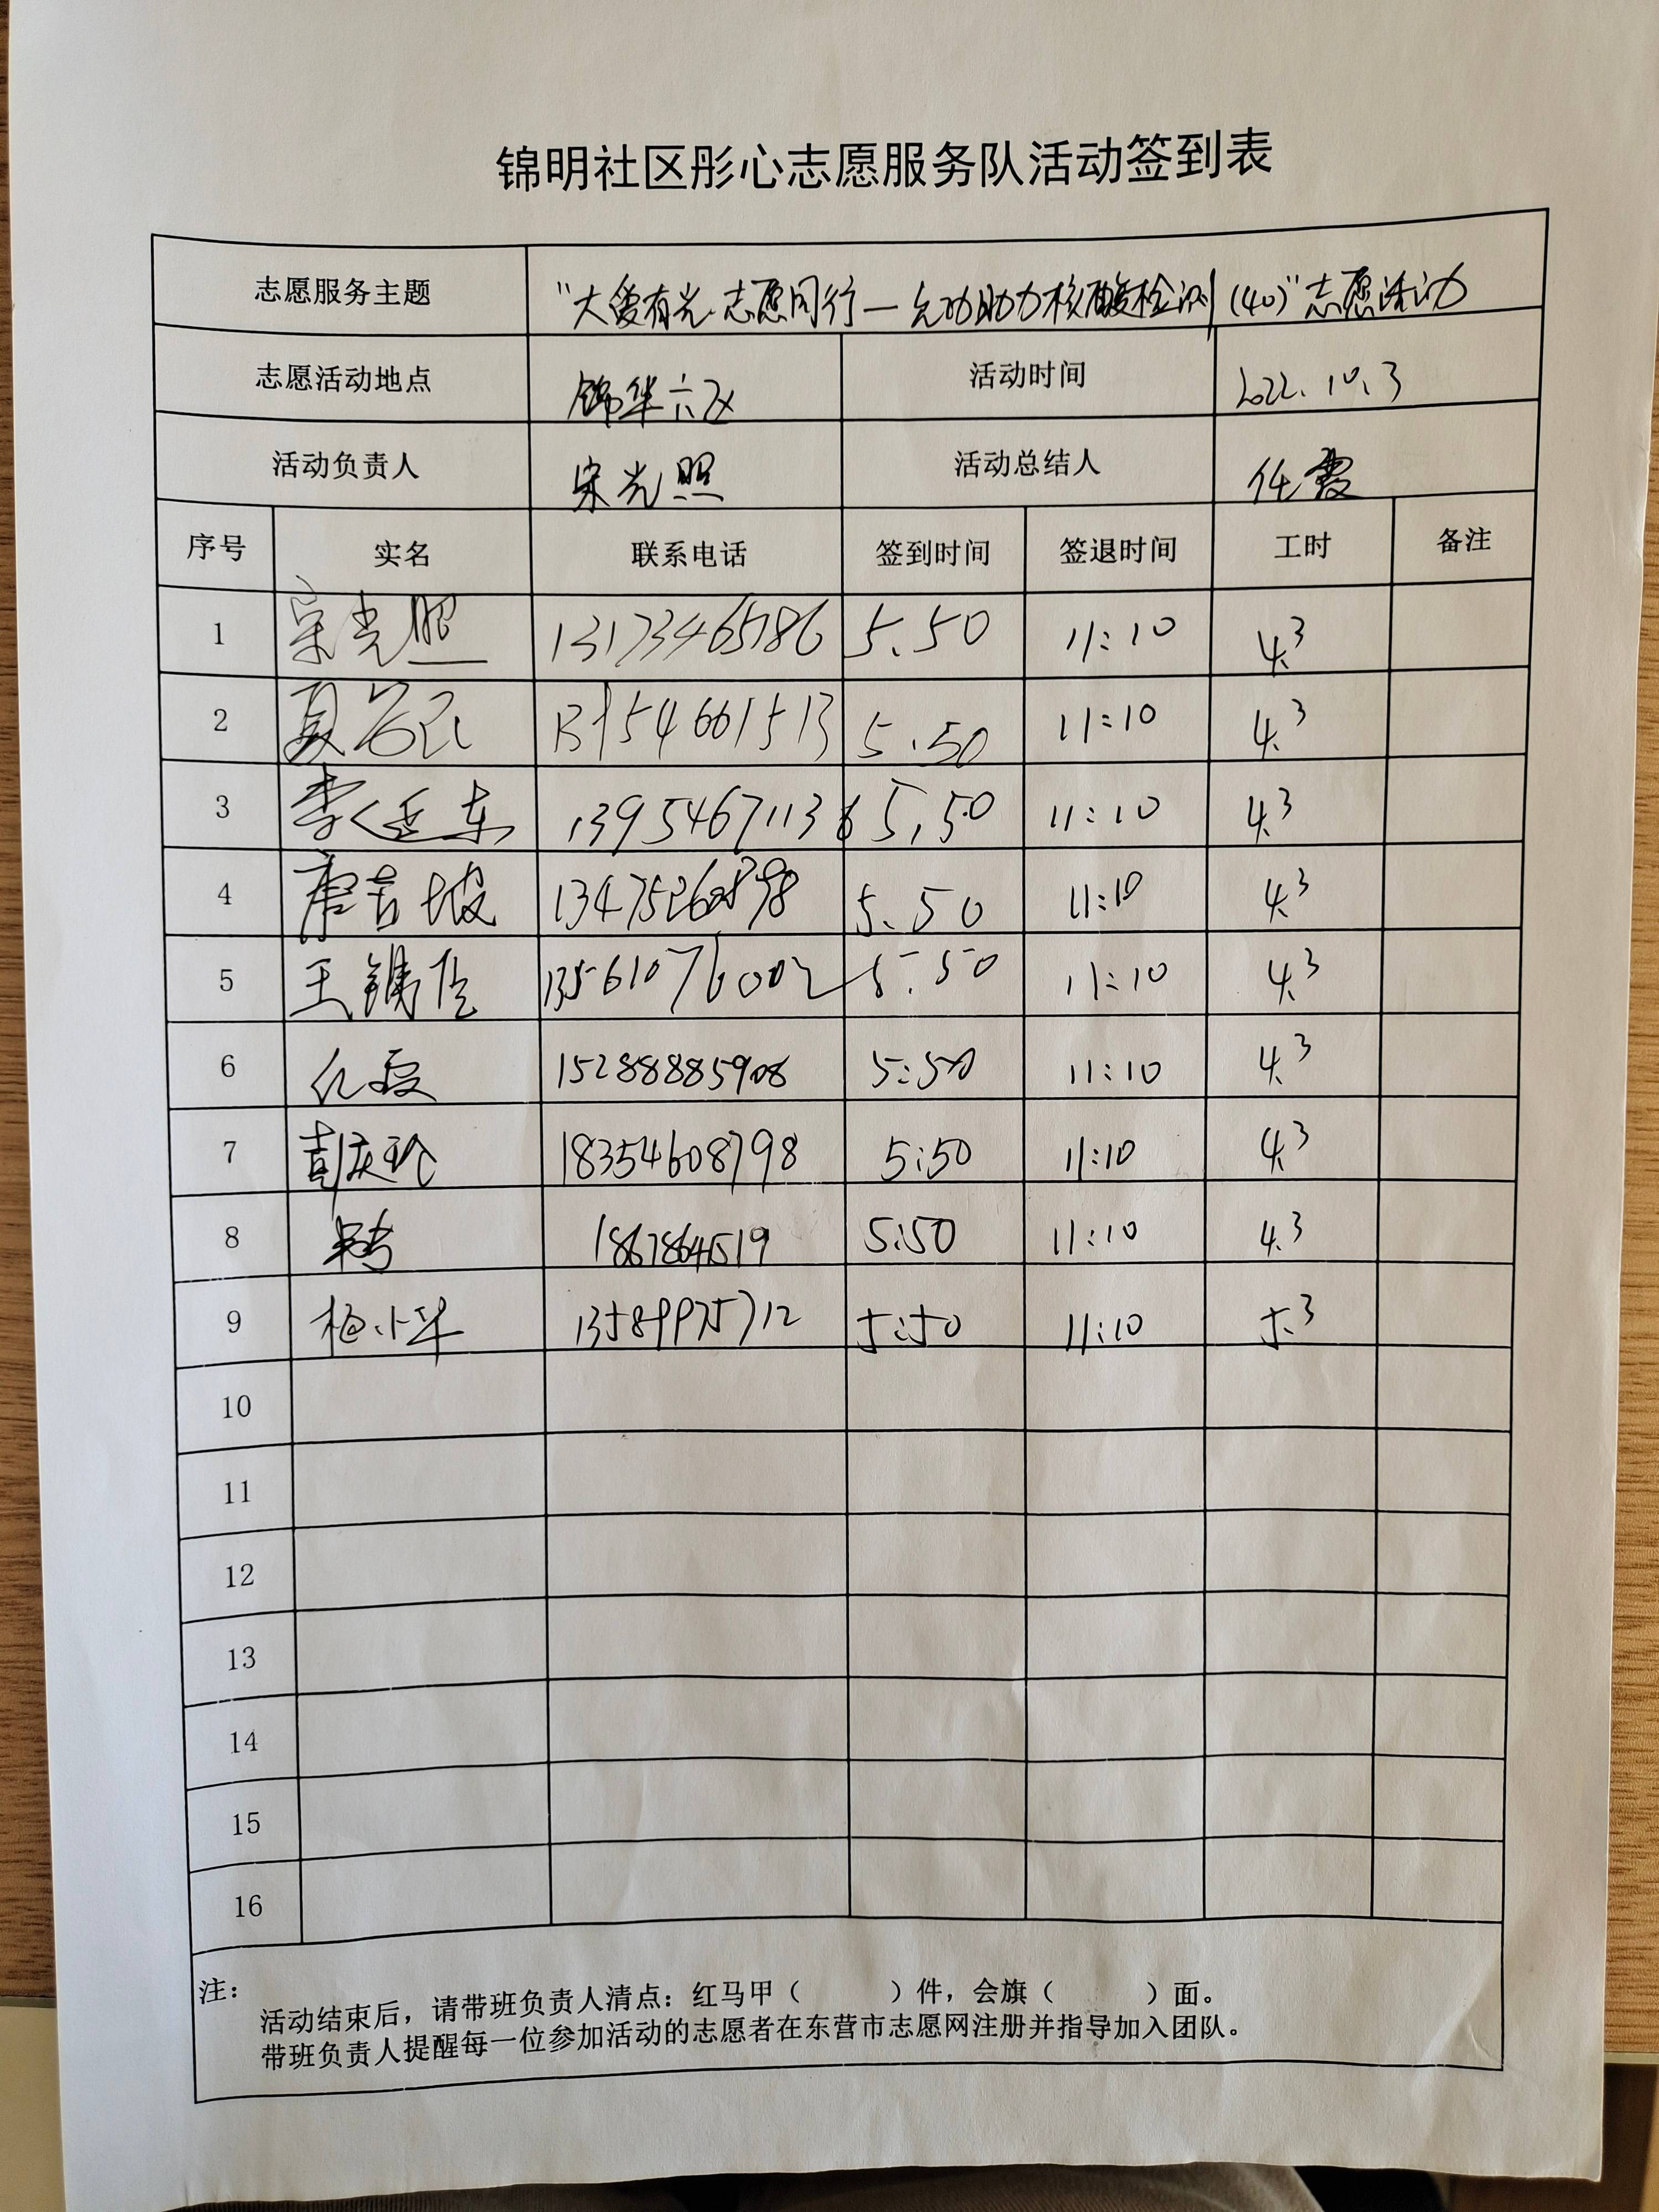 锦明社区彤心志愿服务队活动签到表
志愿服务主题 “大爱有光.志愿同行—全力助力核酸检测(40)”志愿活动
志愿活动地点 锦华六区 活动时间 2022.10.3
活动负责人 宋光照 活动总结人 任霞
序号 实名 联系电话 签到时间 签退时间 工时 备注
1 宋光照 13173465786 5.50 11:10 4.3
2 5.50 11:10 4.3
3 李延东 13954671136 5.50 11:10 4.3
4 唐吉坡 5.50 11:10 4.3
5 13561076002 5:50 11:10 4.3
6 任霞 15288885908 5:50 11:10 4.3
7 18354608798 5:50 11:10 4.3
8 18678641519 5:50 11:10 4.3
9 杨小华 13589975712 5:50 11:10 5.3
10
11
12
13
14
15
16
注:
活动结束后，请带班负责人清点：红马甲（ ）件，会旗（ ）面。
带班负责人提醒每一位参加活动的志愿者在东营市志愿网注册并指导加入团队。